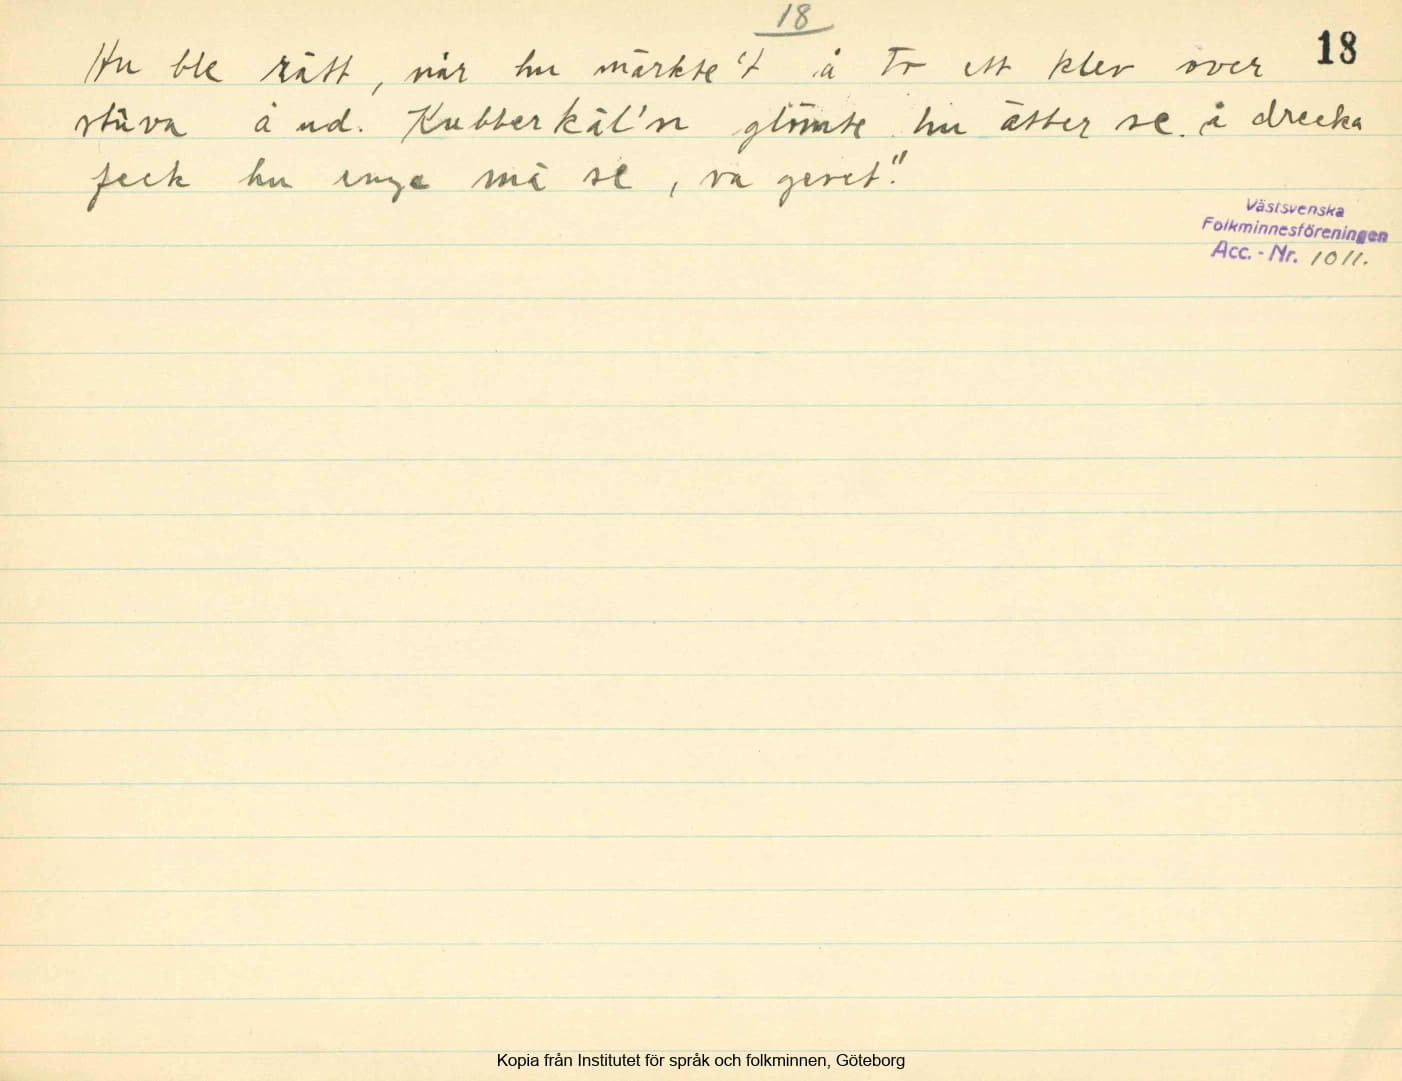 18
18
Hu ble rätt, når hu märkte't å to ett klev över
stúva å ud. Kubberkäl'n glömte hu ätter se. å drecka
feck hu inge mä se, va gevet."
Västsvenska
Folkminnesföreningen
Acc. - Nr. 1011.
Kopia från Institutet för språk och folkminnen, Göteborg